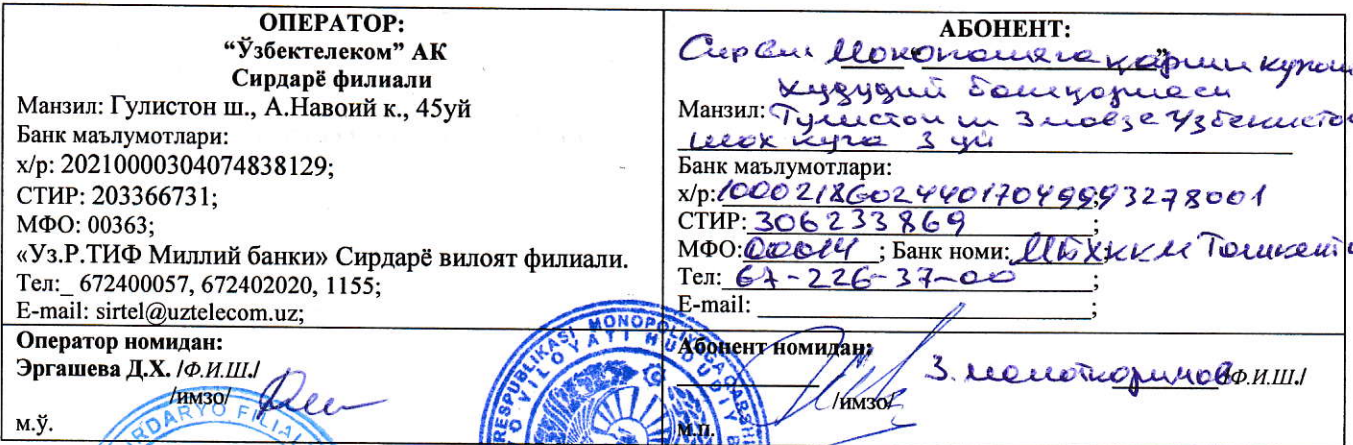 ОПЕРАТОР:
“Ўзбектелеком” АК
Сирдарё филиали
Манзил: Гулистон ш., А.Навоий к., 45уй
Банк маълумотлари:
х/р: 20210000304074838129;
СТИР: 203366731;
МФО: 00363;
«Уз.Р.ТИФ Миллий банки» Сирдарё вилоят филиали.
Тел:_ 672400057, 672402020, 1155;
E-mail: sirtel@uztelecom.uz;
Оператор номидан:
Эргашева Д.Х. /Ф.И.Ш./
/имзо/
м.ў.
АБОНЕНТ:
Сирвил Монополияга қарши кураш
ҳудудий бошқармаси
Манзил: Гулистон ш 3 мавзе Ўзбекистон
шох кўча 3 уй
Банк маълумотлари:
х/р: 100021860244017049993278001
СТИР: 306233869 ;
МФО: 00014 ; Банк номи: МБХККМ Тошкент
Тел: 67-226-37-00 ;
E-mail: ;
Абонент номидан:
З. /Ф.И.Ш./
/имзо/
м.п.
RESPUBLIKASI MONOPOLIYAGA QARSHI
VILOYATI HUDUDIY B
RDARYO FILIAL